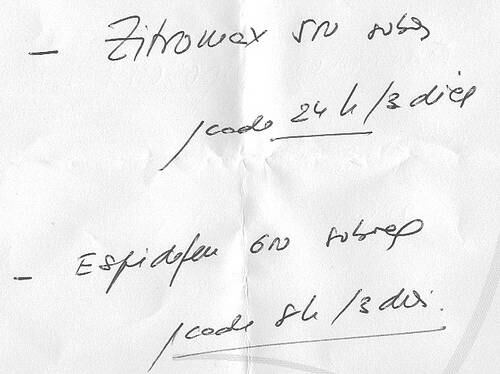 - Zitromax 500 sobres
1 cada 24 h / 3 días
- Espidifen 600 sobres
1 cada 8h / 3 días.